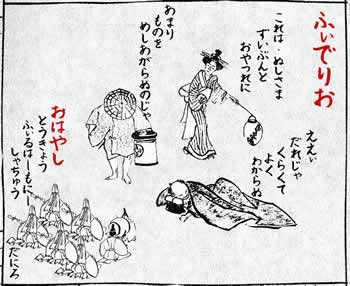 ふぃでりお
これは‥ぬしさま
ずいぶんと
おやつれに
ええぃ
だれじゃ
くらくて
よく
わからぬ
あまり
ものを
めしあがらぬのじゃ
おはやし
とうきょう
ふぃるはーもに
しゃちゅう
だにろ